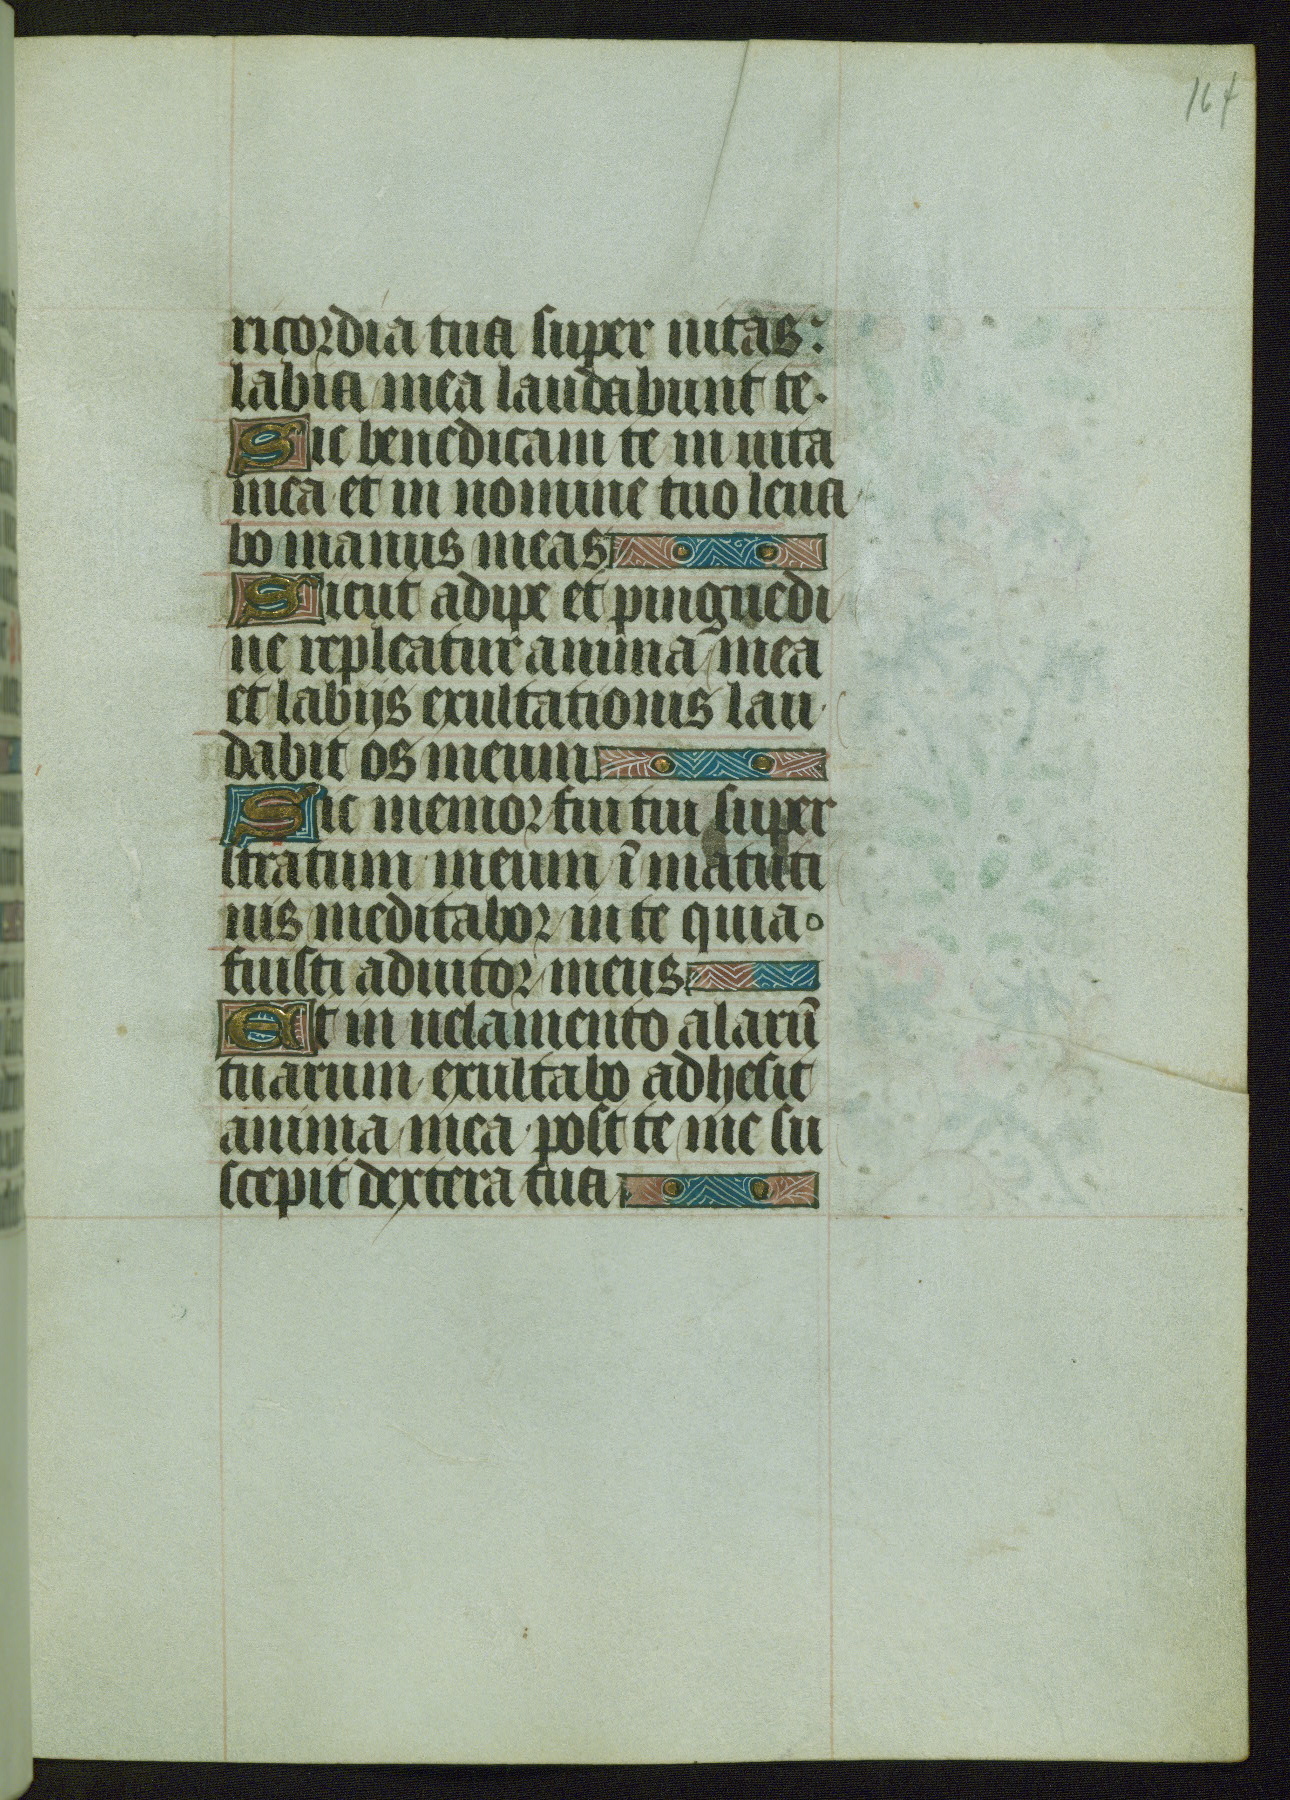 164
ricordia tua super uitas:
labia mea laudabunt te.
Sic benedicam te in uita
mea et in nomine tuo leua
bo manus meas
Sicut adipe et pinguedi
ne repleatur anima mea
et labijs exultationis lau
dabit os meum
Sic memor fui tui super
stratum meum ī matuti
nis meditabor in te quia
fuisti adiutor meus
Et in uelamento alarū
tuarum exultabo adhesit
anima mea post te me su
scepit dextera tua